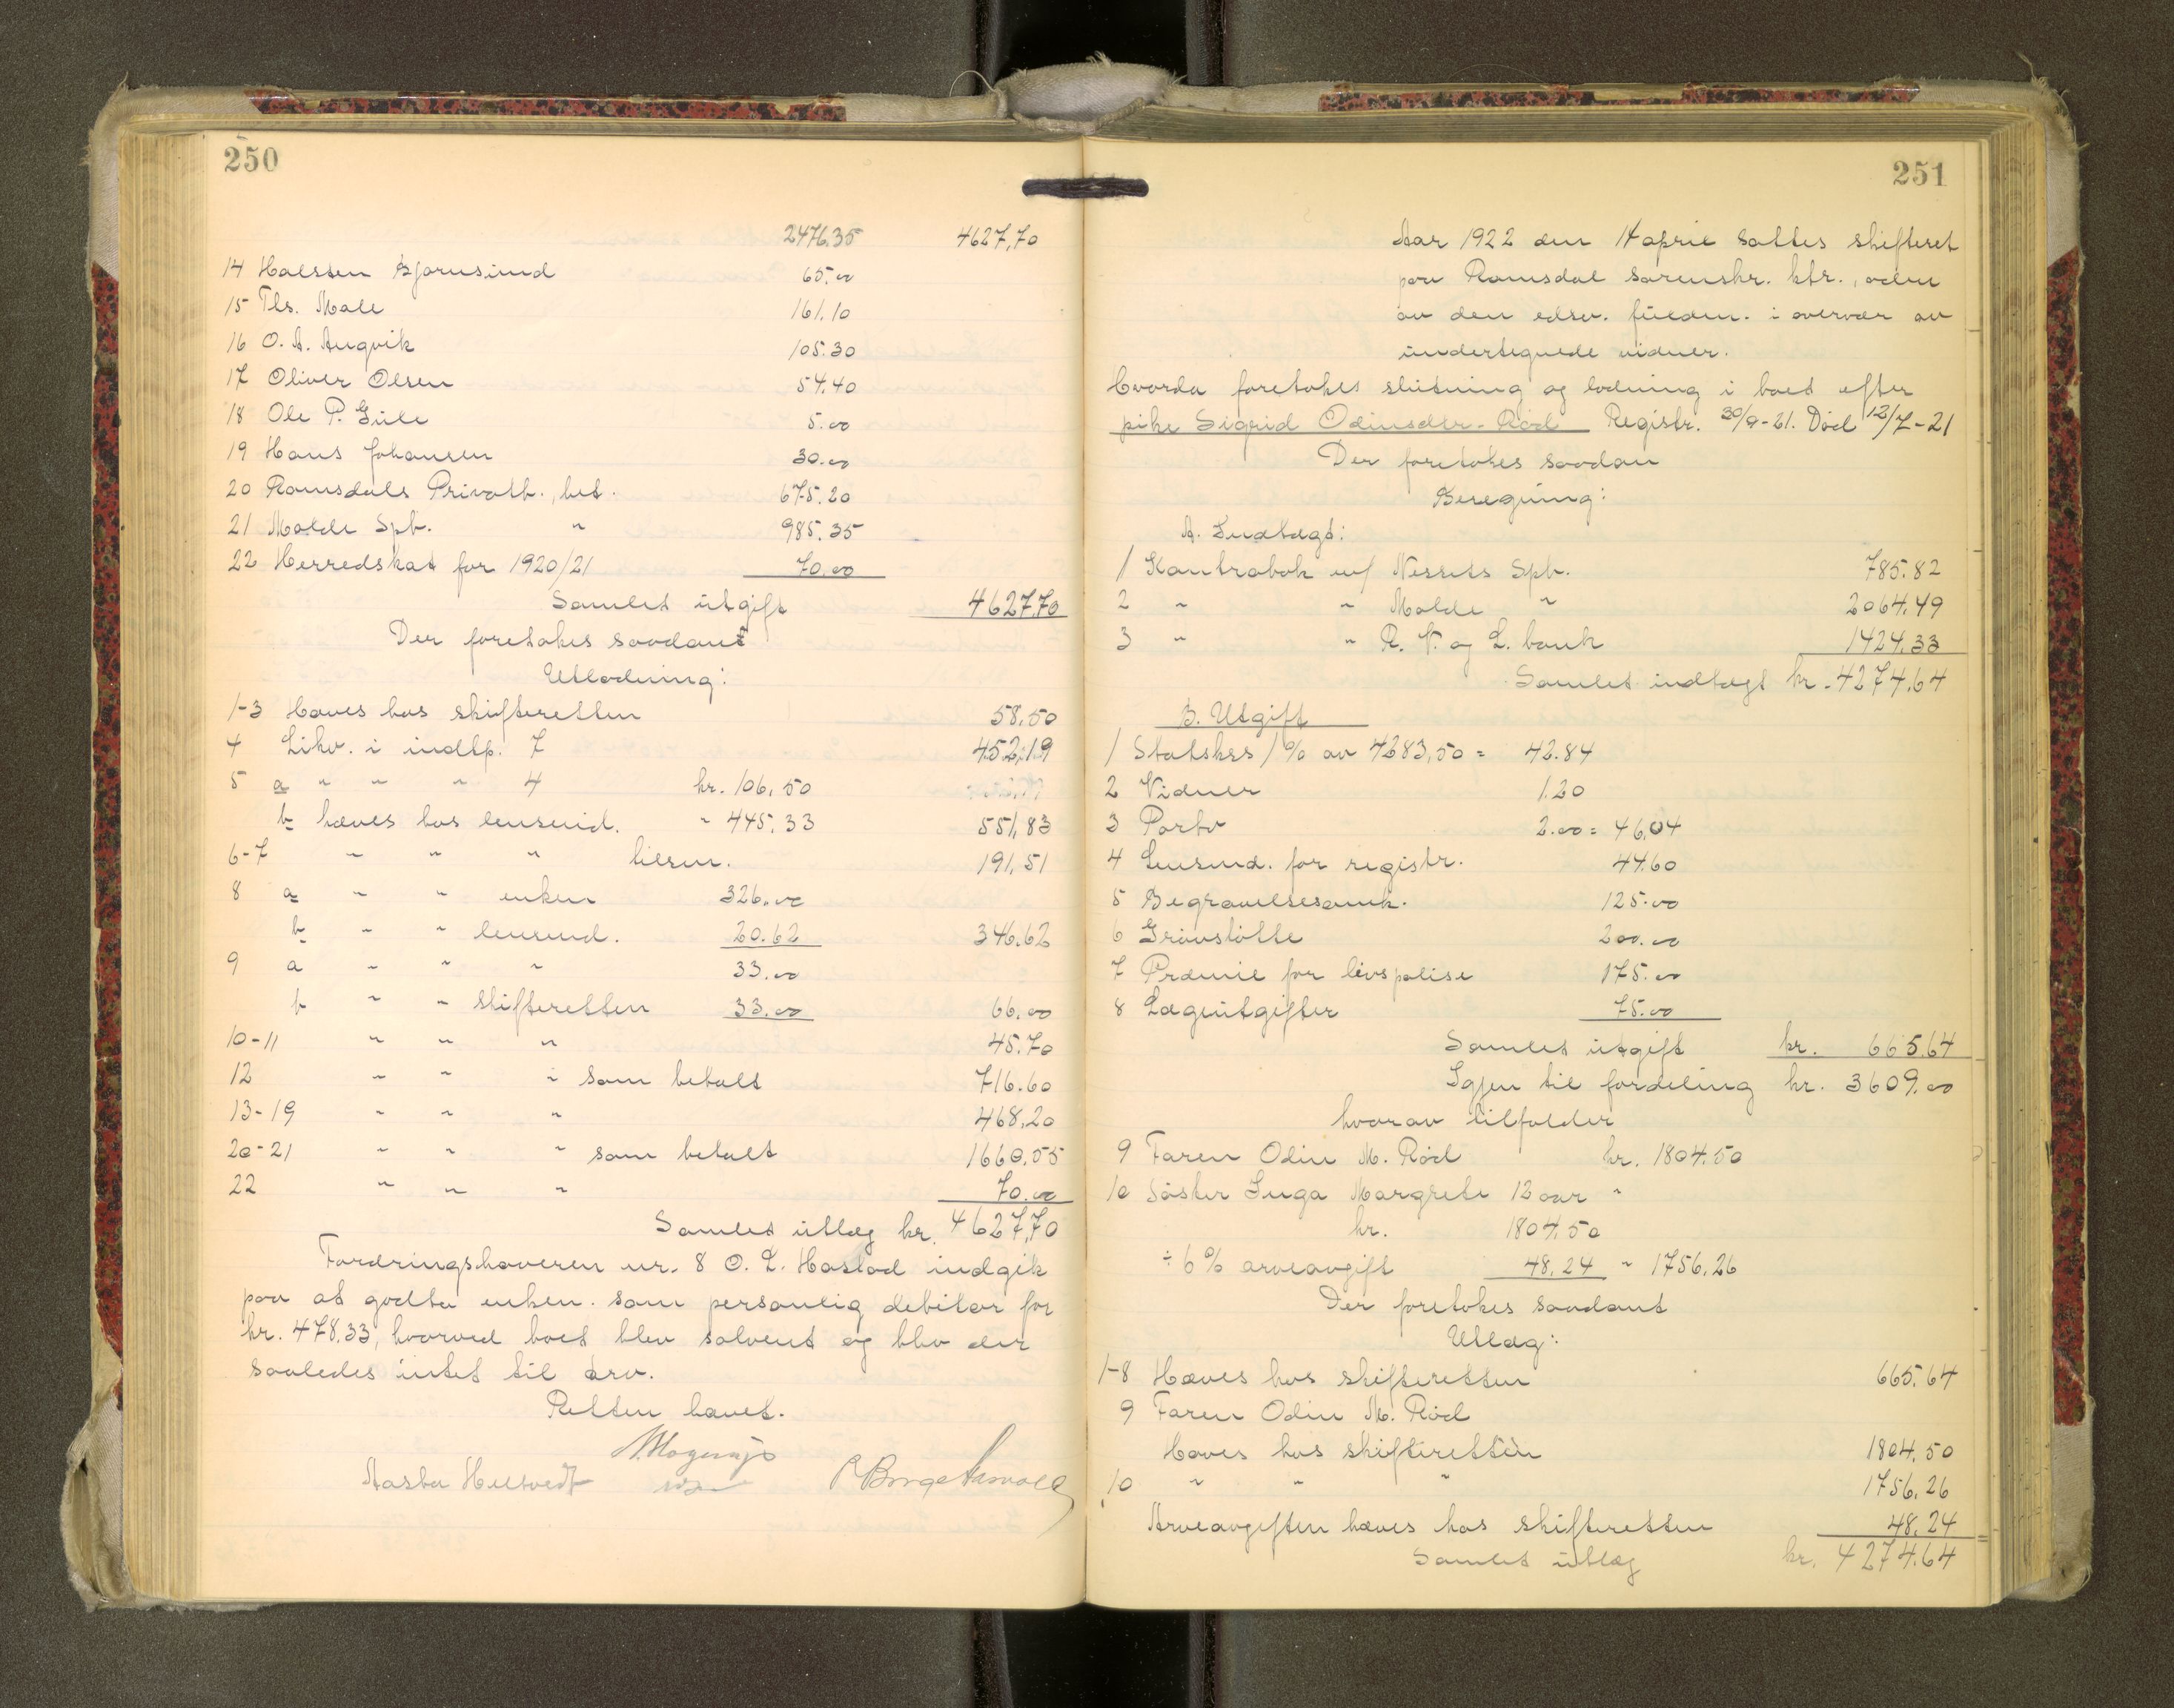 250
2476.35 4627,70
14 Halsten Bjørnsund 65.00
15 Tls. Male 161.10
16 O. A. Angvik 105.30
17 Oliver Olsen 54.40
18 Ole P. Gule 5.00
19 Hans Johansen 30.00
20 Romsdals Privatb., bet. 675.20
21 Molde Spb. " 985.35
22 Herredskat for 1920/21 70.00
Samlet utgift 4627.70
Der foretokes saadant
Utlodning:
1-3 Hæves hos skifteretten 58.50
4 Likv. i indtp. 7 452,19
5 a " " " 4 kr. 106,50
b hæves hos lensmd. " 445,33 551,83
6-7 " " " 191,51
8 a " " enken 326.00
b " " lensmd. 20.62 346.62
9 a " " " 33.00
b " " skifteretten 33.00 66.00
10-11 " " " 45.70
12 " " " som betalt 716.60
13-19 " " " 468,20
20-21 " " " som betalt 1660,55
22 " " " 70.00
Samlet utlæg kr. 4627,70
Fordringshaveren nr. 8 O. L. Hastad indgik
paa at godta enken som personlig debitor for
kr. 478.33, hvorved boet blev solvent og blev der
saaledes intet til arv.
Retten hævet.
Aasta Heltvedt
251
Aar 1922 den 11 april sattes skifteret
paa Romsdal sorenskr. ktr., adm
av den edsv. fuldm. i overvær av
undertegnede vidner.
Hvorda foretokes slutning og lodning i boet efter
pike Sigrid Odinsdtr. Rød Registr. 30/9-21. Død 12/7-21
Der foretokes saadan
Beregning:
A. Indtægt:
1 Kontrabok m/ Nessets Spb. 785.82
2 " " Molde " 2064.49
3 " " R. V. og L. bank 1424.33
Samlet indtægt kr. 4274,64
B. Utgift
1 Statskss 1% av 4283,50 = 42.84
2 Vidner 1.20
3 Porto 2.00 = 46.04
4 Lensmd. for registr. 44.60
5 Begravelsesomk. 125.00
6 Gravstøtte 200.00
7 Præmie for livspolise 175.00
8 Lægeutgifter 75.00
Samlet utgift kr. 665.64
Igjen til fordeling kr. 3609.00
hvorav tilfalder
9 Faren Odin M. Rød kr. 1804.50
10 Søster Inga Margrete 12 aar "
kr. 1804.50
÷ 6% arveavgift 48.24 " 1756.26
Der foretokes saadant
Utlæg:
1-8 Hæves hos skifteretten 665.64
9 Faren Odin M. Rød
Hæves hos skifteretten 1804.50
10 " " " 1756.26
Arveavgiften hæves hos skifteretten 48.24
Samlet utlæg kr. 4274.64